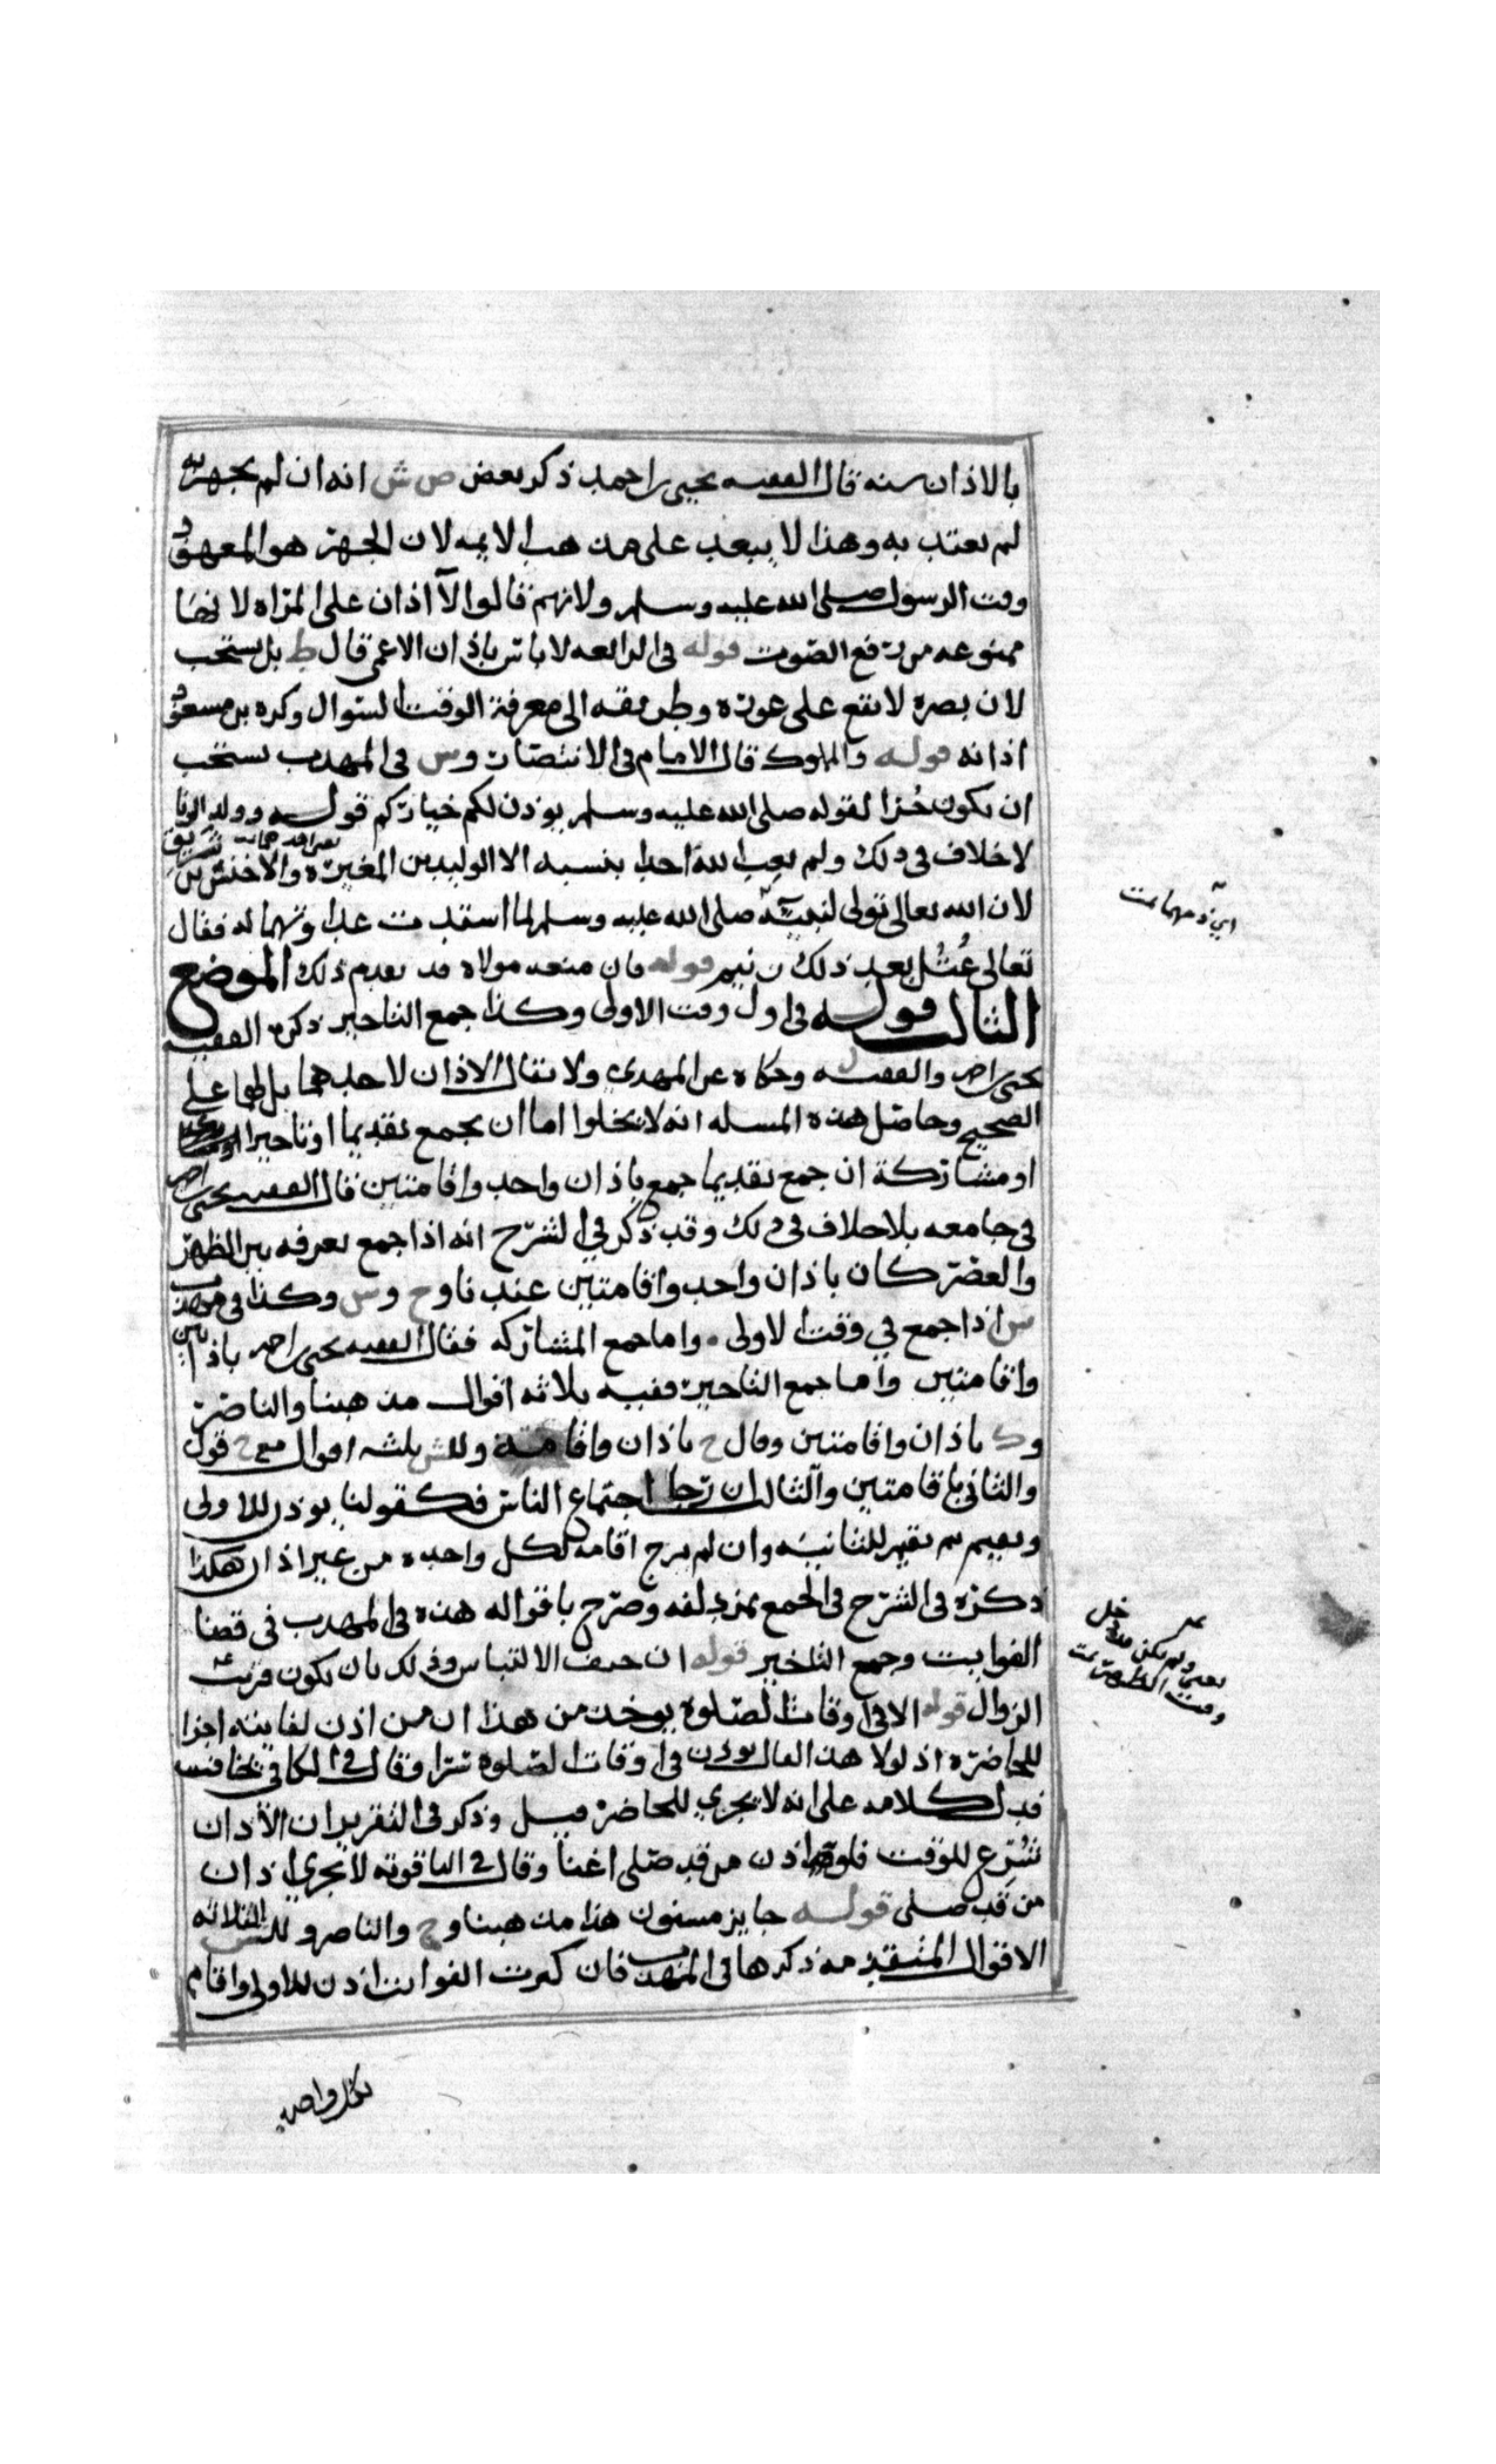 بالاذان سنه قال الفقيه يحيى بن احمد ذكر بعض ص ش انه ان لم يجهر به
لم يعتد به وهذا لا يبعد على مذهب الايمه لان الجهر هو المعهود
وقت الرسول صلى الله عليه وسلم ولانهم قالوا لا اذان على المراه لانها
ممنوعه من رفع الصوت قوله في الرابعه لا باس باذان الاعمى قال ط بل يستحب
لان بصره لا يقع على عوره وطريقه الى معرفة الوقت السوال وكره بن مسعود
اذانه قوله والمملوك قال الامام في الانتصار وس في المهذب يستحب
ان يكون حُرا لقوله صلى الله عليه وسلم يوذن لكم خياركم قوله وولد الزنا
لا خلاف في ذلك ولم يعب الله احدا بنسبه الا الوليد بن المغيره والاخنس بن شريق
لان الله تعالى تولى لنبيه صلى الله عليه وسلم لما استدت عداوتهما له فقال
تعالى عُتُل بعد ذلك زنيم قوله فان منعه مولاه قد تقدم ذلك الموضع
الثالث قوله في اول وقت الاولى وكذا جمع التاخير ذكره الفقيه
يحيى بن احمد والفقيه وحكاه عن المهدي ولا يقال الاذان لاحدهما بل لهما على
الصحيح وحاصل هذه المسله انه لا يخلوا اما ان يجمع تقديما او تاخيرا
او مشاركة ان جمع تقديما جمع باذان واحد واقامتين قال الفقيه يحيى بن احمد
في جامعه بلا خلاف في ذلك وقد ذكر في الشرح انه اذا جمع بعرفه بين الظهر
والعصر كان باذان واحد واقامتين عندنا وح وس وكذا في مهذب
ش اذا جمع في وقت الاولى واما جمع المشاركه فقال الفقيه يحيى بن احمد باذانين
واقامتين واما جمع التاخير ففيه ثلاثه اقوال مذهبنا والناصر
وك باذان واقامتين وقال ح باذان واقامة وللش ثلثه اقوال مع ح قول
والثاني باقامتين والثالث ان رجا اجتماع الناس فكقولنا يوذن للاولى
ويقيم ثم يقيم للثانيه وان لم يرج اقامه لكل واحده من غير اذان هكذا
ذكره في الشرح في الجمع بمزدلفه وصرح باقواله هذه في المهذب في قضا
الفوايت وجمع التاخير قوله ان خيف الالتباس وذلك بان يكون قريب
الزوال قوله الا في اوقات الصلوة يوخذ من هذا ان من اذن لفايته اجزا
للحاضره اذ لولا هذا لقال يوذن في اوقات الصلوة سرا وقال في الكافي يخافت
فدل كلامه على انه لا يجزي للحاضر قيل وذكر في التقرير ان الاذان
شرع للوقت فلو اذن من قد صلى اغنا وقال في الياقوته لا يجزي اذان
من قد صلى قوله جايز مسنون هذا مذهبنا وح والناصر وللش الثلاثه
الاقوال المتقدمه ذكرها في المهذب فان كثرت الفوايت اذن للاولى واقام
لكل واحده
يعني ولم يكن قد دخل
وقت الظهر تمت